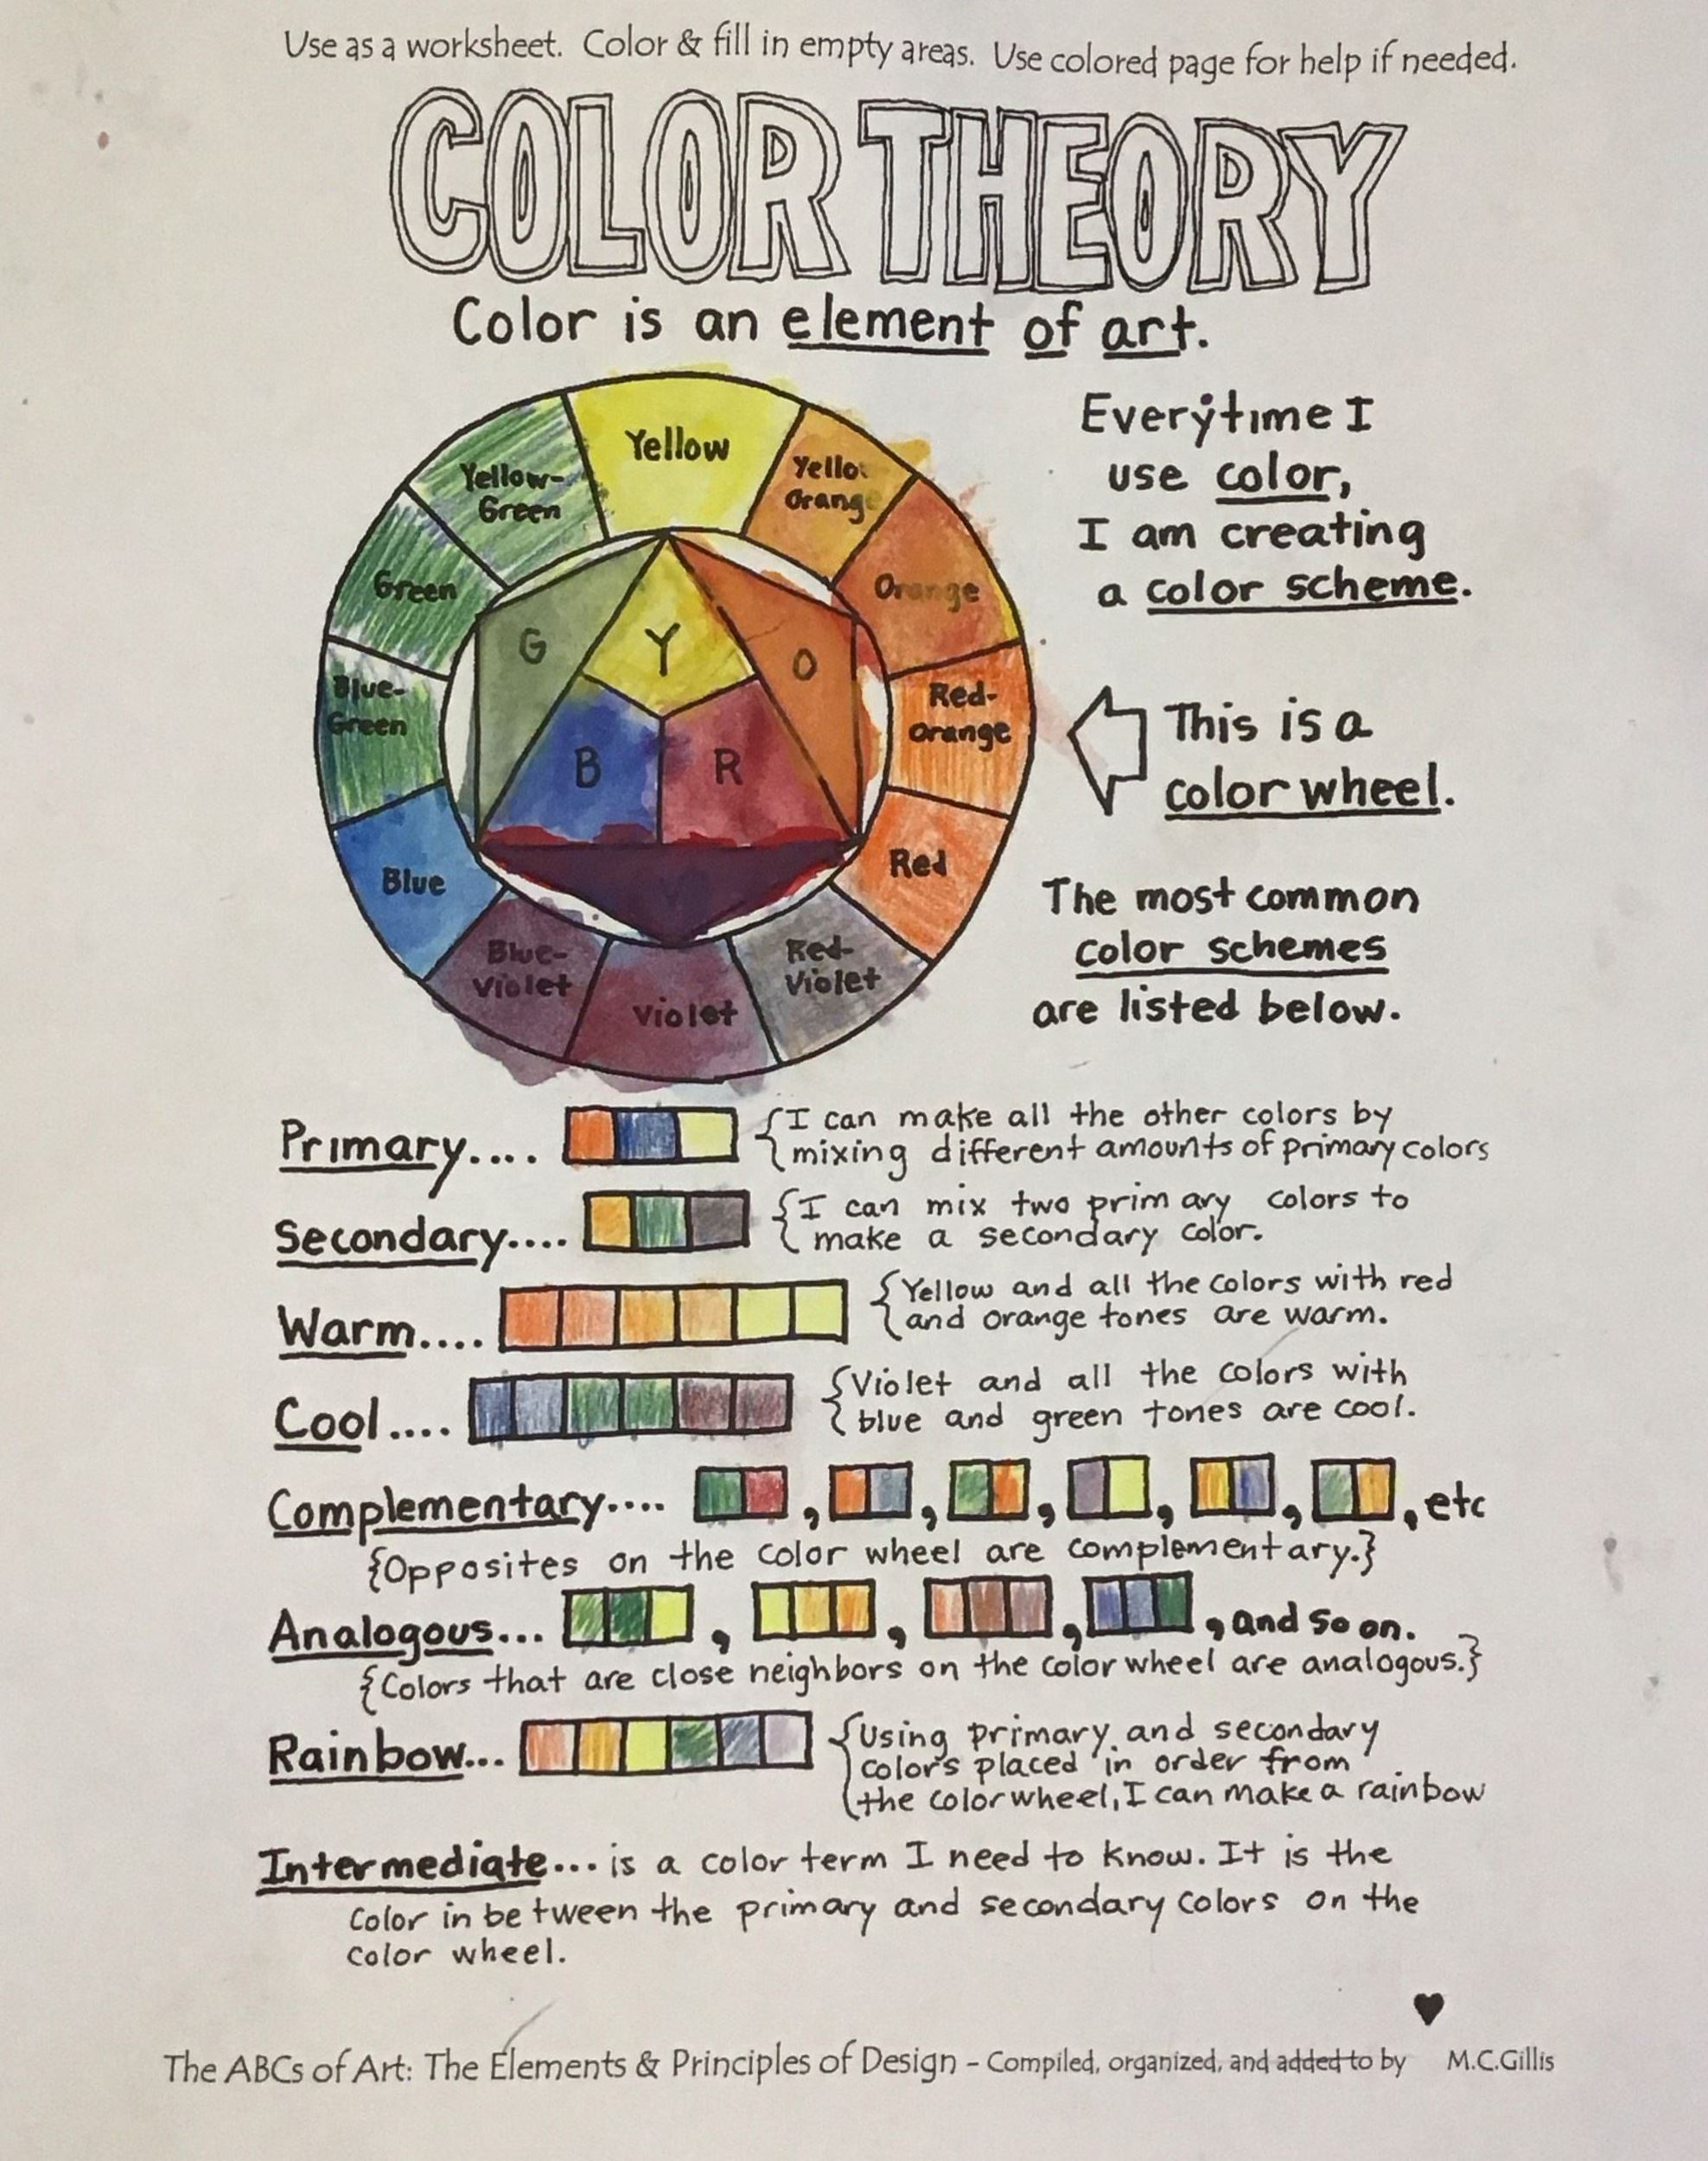 Use as a worksheet. Color & fill in empty areas. Use colored page for help if needed.
COLOR THEORY
Color is an element of art.
Yellow
Yellow-
Green
Green
Blue-
Green
Blue
Blue-
Violet
Violet
Red-
Violet
Red
Red-
Orange
Orange
Yello
Orange
G
Y
O
B
R
V
Everytime I
use color,
I am creating
a color scheme.
This is a
color wheel.
The most common
color schemes
are listed below.
Primary.... {I can make all the other colors by
mixing different amounts of primary colors
Secondary.... {I can mix two primary colors to
make a secondary color.
Warm.... {Yellow and all the colors with red
and orange tones are warm.
Cool.... {Violet and all the colors with
blue and green tones are cool.
Complementary.... , , , , , , etc
{Opposites on the color wheel are complementary.}
Analogous... , , , , and so on.
{Colors that are close neighbors on the color wheel are analogous.}
Rainbow... {Using primary and secondary
colors placed in order from
the color wheel, I can make a rainbow
Intermediate... is a color term I need to know. It is the
color in between the primary and secondary colors on the
color wheel.
The ABCs of Art: The Elements & Principles of Design - Compiled, organized, and added to by M.C.Gillis